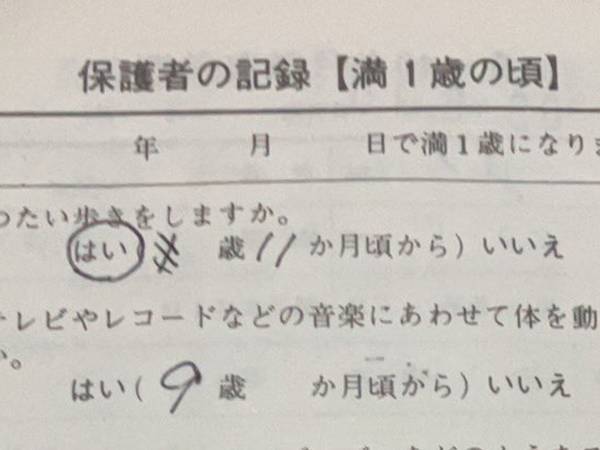 保護者の記録【満1歳の頃】
年 月 日で満1歳になりま
ったい歩きをしますか。
はい 歳 11 か月頃から) いいえ
テレビやレコードなどの音楽にあわせて体を動
か。
はい( 9 歳 か月頃から) いいえ